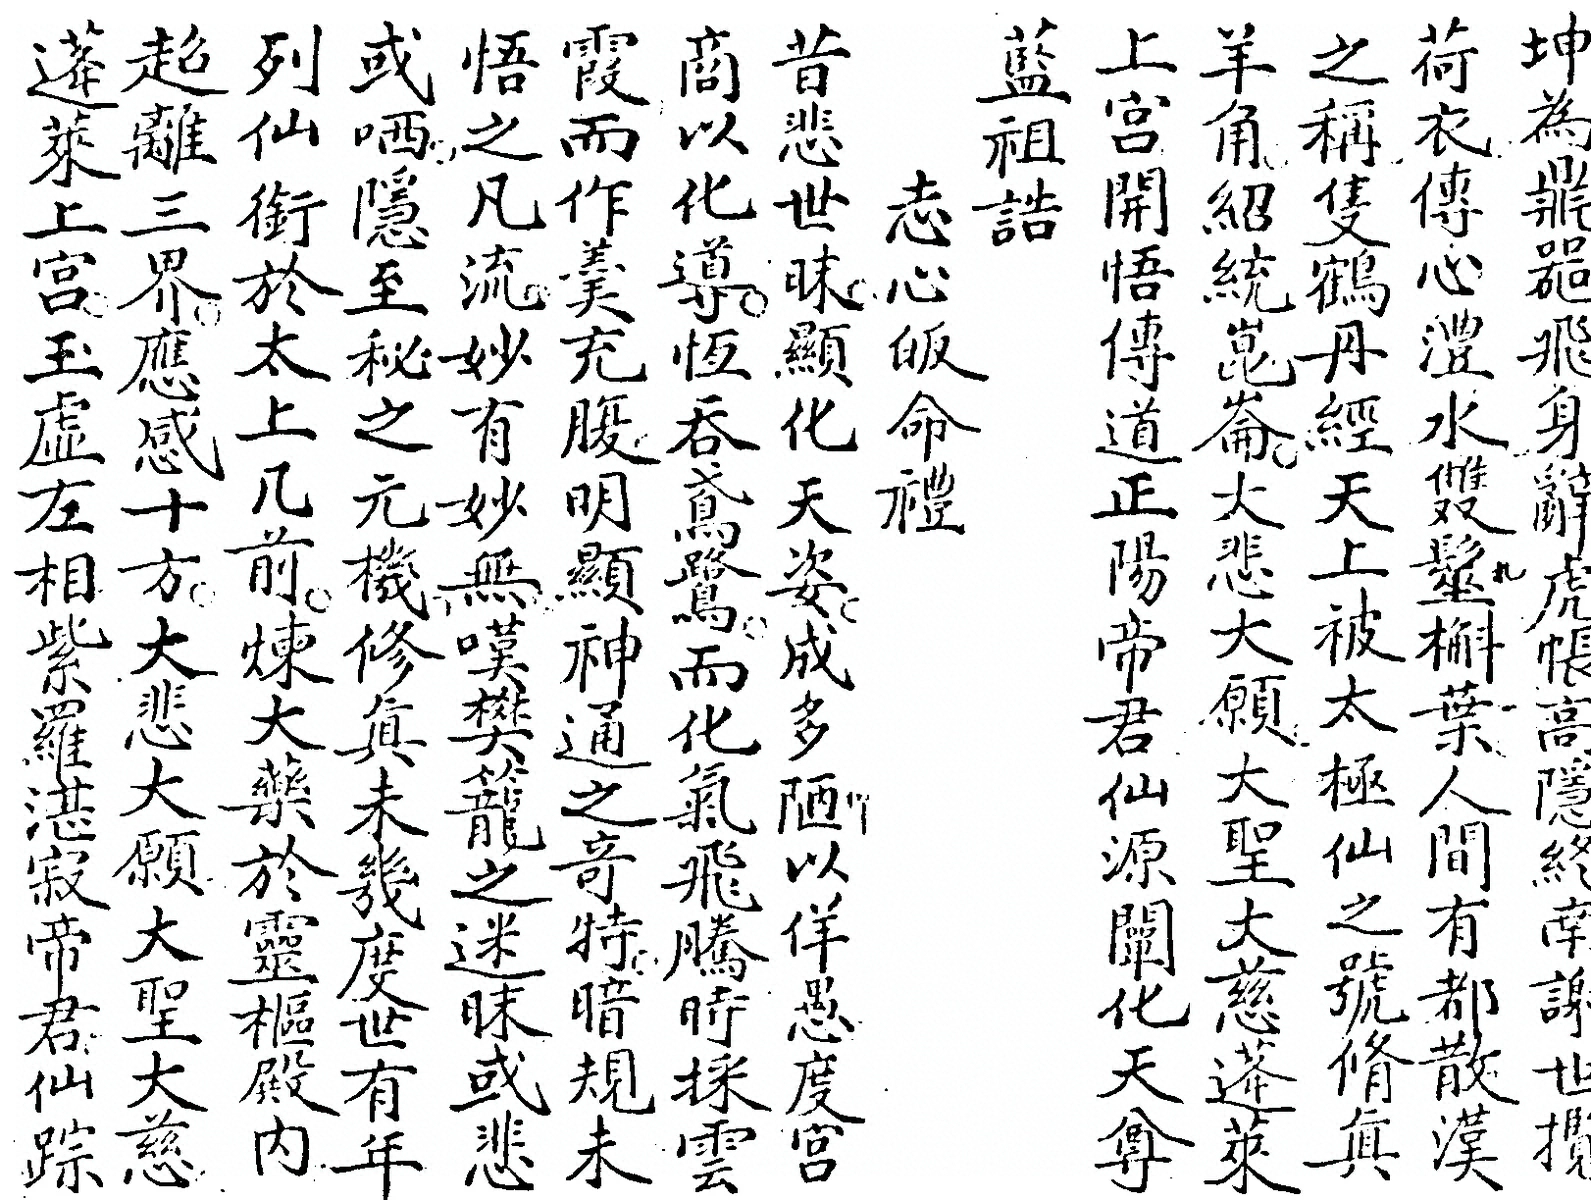 坤為鼎器飛身辭虎帳高隱終南謝世攬
荷衣傳心澧水雙髻槲葉人間有都散漢
之稱隻鶴丹經天上被太極仙之號脩真
羊角紹統崑崙大悲大願大聖大慈蓬萊
上宮開悟傳道正陽帝君仙源闡化天尊
藍祖誥
志心皈命禮
昔悲世昧顯化天姿成多陋以佯愚度宮
商以化導恆吞鳶鷺而化氣飛騰時採雲
霞而作羹充腹明顯神通之奇特暗規未
悟之凡流妙有妙無嘆樊籠之迷昧或悲
或哂隱至秘之元機修真未幾度世有年
列仙銜於太上几前煉大藥於靈樞殿內
超離三界應感十方大悲大願大聖大慈
蓬萊上宮玉虛左相紫羅湛寂帝君仙踪